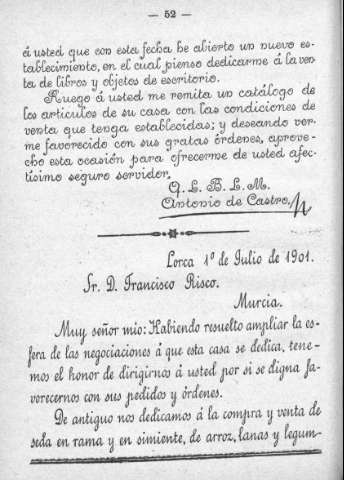 — 52 —
á usted que con esta fecha he abierto un nuevo es-
tablecimiento, en el cual pienso dedicarme á la ven
ta de libros y objetos de escritorio.
Ruego á usted me remita un catálogo de
los artículos de su casa con las condiciones de
venta que tenga establecidas; y deseando ver-
me favorecido con sus gratas órdenes, aprove-
cho esta ocasión para ofrecerme de usted afec-
tísimo seguro servidor,
Q. L. B. L. M.
Antonio de Castro,
Lorca 1º de Julio de 1901.
Sr. D. Francisco Risco.
Murcia.
Muy señor mio: Habiendo resuelto ampliar la es-
fera de las negociaciones á que esta casa se dedica, tene-
mos el honor de dirigirnos á usted por si se digna fa-
vorecernos con sus pedidos y órdenes.
De antiguo nos dedicamos á la compra y venta de
seda en rama y en simiente, de arroz, lanas y legum-